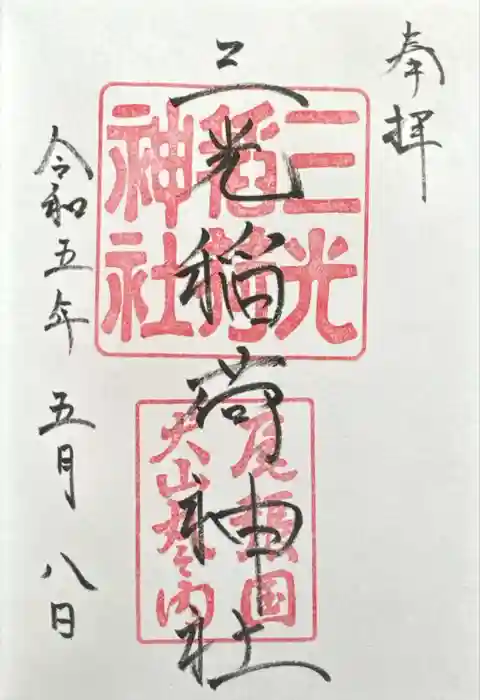 奉拝
三光稲荷神社
三光
稲荷
神社
尾張国
犬山丸之内
令和五年 五月 八日